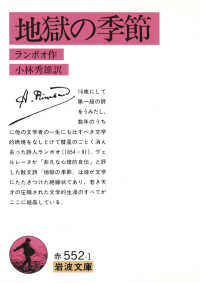 地獄の季節
ランボオ作
小林秀雄訳
A. Rimbaud
16歳にして
第一級の詩
をうみだし、
数年のうち
に他の文学者の一生にも比すべき文学
的燃焼をなしとげて彗星のごとく消え
去った詩人ランボオ(1854-91)。ヴェ
ルレーヌが「非凡な心理的自伝」と評
した散文詩「地獄の季節」は彼が文学
にたたきつけた絶縁状であり、若き天
才の圧縮された文学的生涯のすべてが
ここに結晶している。
赤 552-1
岩波文庫